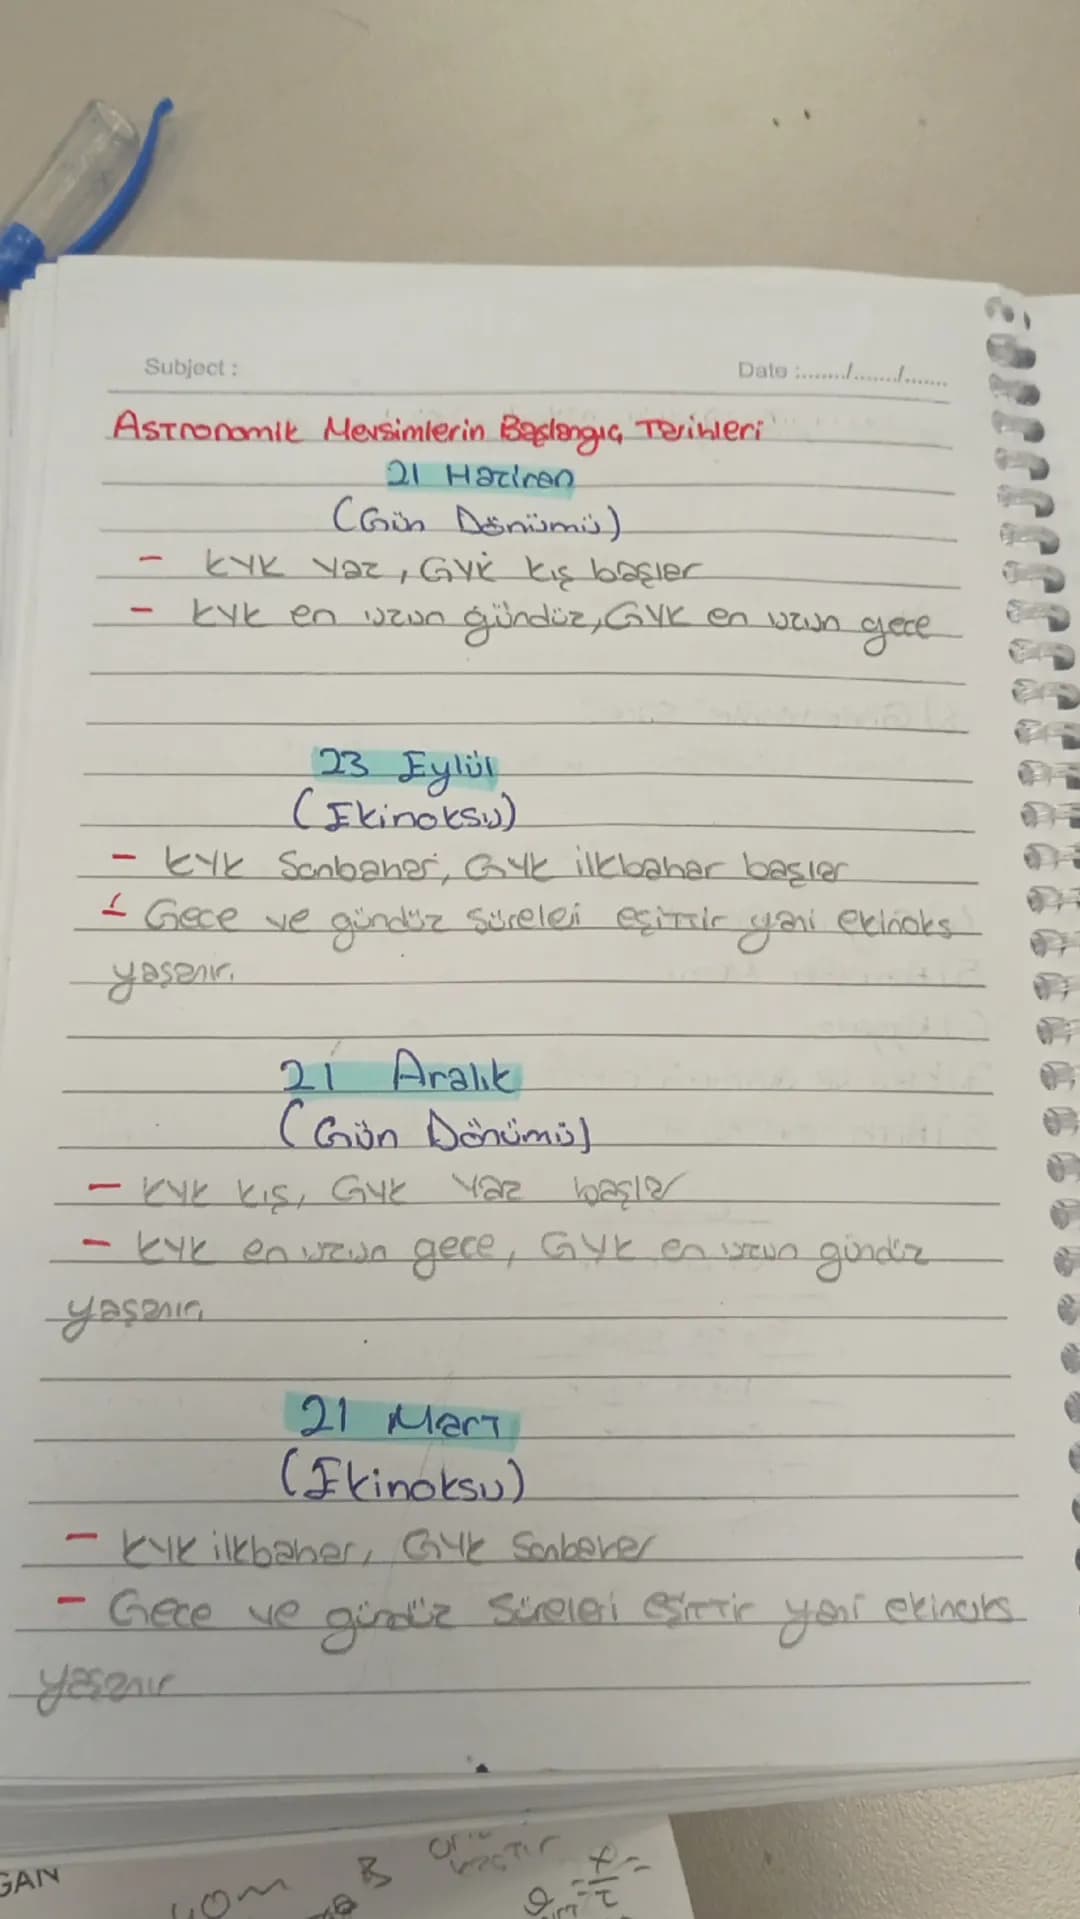 Subject :
Date :......../......../........
Astronomik Mevsimlerin Başlangıç Tarihleri
21 Haziran
(Gün Dönümü)
- KYK Yaz, GYK kış başlar
- KYK en uzun gündüz, GYK en uzun gece
23 Eylül
(Ekinoksu)
- KYK Sonbahar, GYK ilkbahar başlar
- Gece ve gündüz süreleri eşittir yani ekinoks
yaşanır.
21 Aralık
(Gün Dönümü)
- KYK kış, GYK Yaz başlar
- KYK en uzun gece, GYK en uzun gündüz
yaşanır
21 Mart
(Ekinoksu)
- KYK ilkbahar, GYK Sonbahar
- Gece ve gündüz süreleri eşittir yani ekinoks
yaşanır
GAN